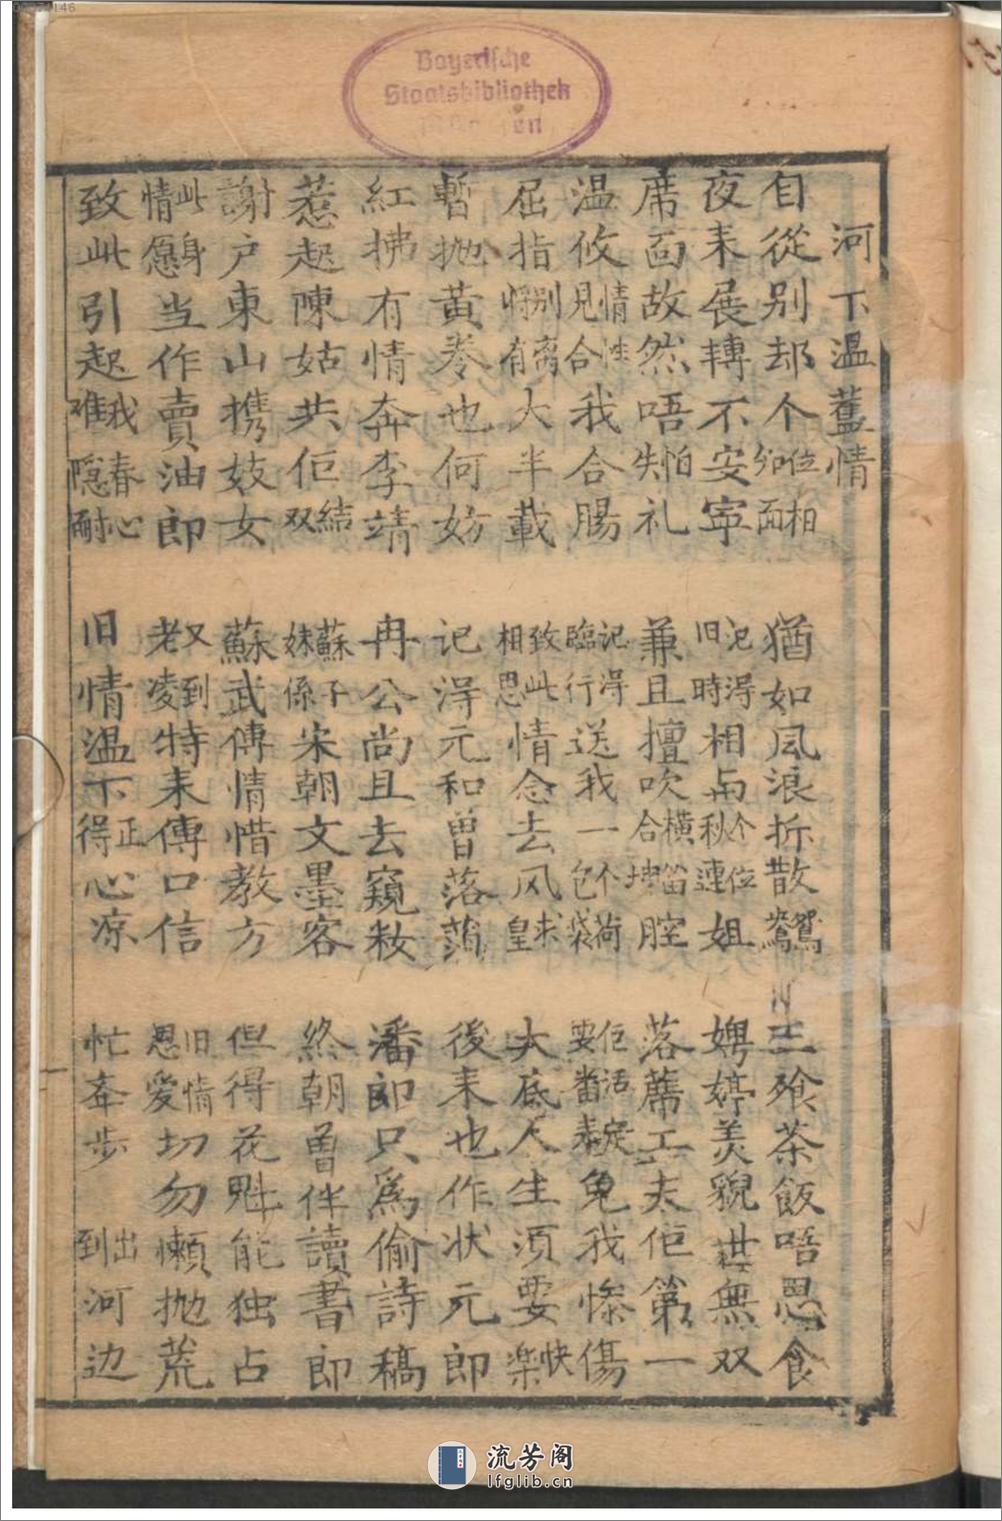 河下溫舊情
自從别却个位相卿面 猶如风浪折散鴛鴦 三飱茶飯唔思食
夜来展轉不安寕 记得旧時相与个位秋連姐 娉婷美貌世無双
席面故然唔怕失礼 兼且擅吹橫笛合腔 落蓆工夫佢第一
温攸情性見合我合腸 记得臨行送我一个荷包袋 佢话定要畨来免我惨傷
屈指别离将有大半載 致此相思情念去风求皇 大底人生須要快楽
暫抛黄卷也何妨 记得元和曾落蕩 後来也作状元郎
紅拂有情奔李靖 冉公尚且去窺籹 潘郎只爲偷詩稿
惹起陳姑共佢結双 蘇子妹係宋朝文墨客 終朝曽伴讀書郎
謝户東山携妓女 蘇武傳情惜教方 但得花魁能独占
此身情愿当作賣油郎 又到老凌特来傳口信 旧情恩愛切勿懶抛荒
致此引起我难春心隱耐 旧情温下正得心凉 忙奔步出到河边
Bayerische
Staatsbibliothek
146
流芳阁
lfglib.cn